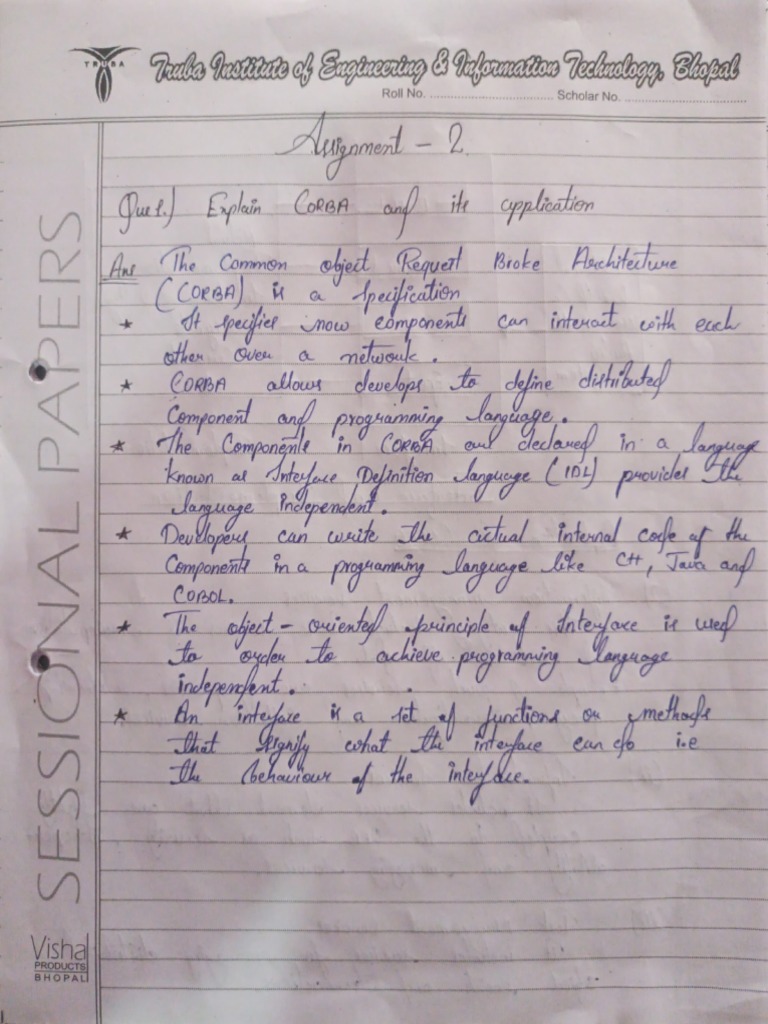 TRUBA
Truba Institute of Engineering & Information Technology, Bhopal
Roll No. .................................... Scholar No. ....................................
Assignment - 2
Que 1.) Explain CORBA and its application
Ans The Common object Request Broke Architecture
(CORBA) is a specification
★ It specifies now components can interact with each
other over a network.
★ CORBA allows develops to define distributed
Component and programming language.
★ The Components in CORBA are declared in a language
known as Interface Definition language (IDL) provides the
language independent.
★ Developers can write the actual internal code of the
Components in a programming language like C++, Java and
COBOL.
★ The object-oriented principle of Interface is used
to order to achieve programming language
independent.
★ An interface is a set of functions or methods
that signify what the interface can do i.e
the behaviour of the interface.
SESSIONAL PAPERS
Vishal
PRODUCTS
BHOPAL